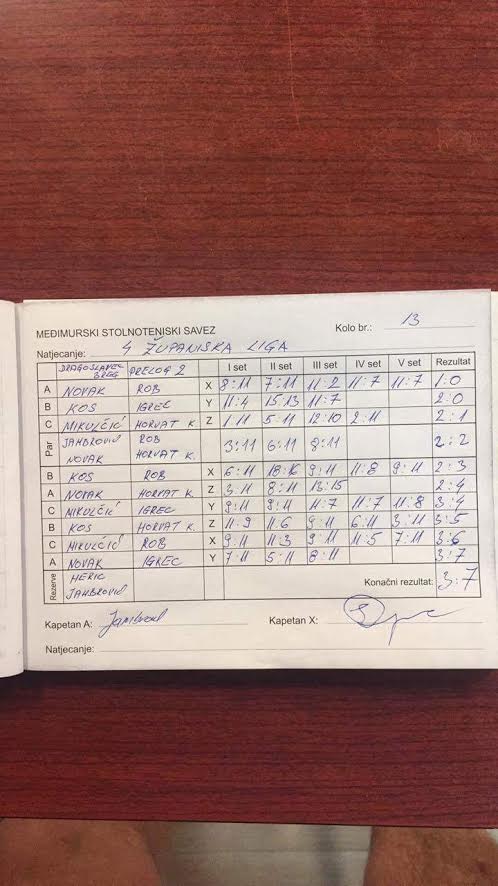 MEĐIMURSKI STOLNOTENISKI SAVEZ
Kolo br.: 13
Natjecanje: 4 ŽUPANIJSKA LIGA
DRAGOSLAVEC BREG PRELOG 2 I set II set III set IV set V set Rezultat
A NOVAK ROB X 8:11 7:11 11:2 11:7 11:7 1:0
B KOS IGREC Y 11:4 15:13 11:7 2:0
C MIKULČIĆ HORVAT K. Z 1:11 5:11 12:10 2:11 2:1
Par JAMBROVIĆ NOVAK ROB HORVAT K. 3:11 6:11 8:11 2:2
B KOS ROB X 6:11 18:16 9:11 11:8 9:11 2:3
A NOVAK HORVAT K. Z 3:11 8:11 13:15 2:4
C MIKULČIĆ IGREC Y 9:11 9:11 11:7 11:7 11:8 3:4
B KOS HORVAT K. Z 11:9 11:6 9:11 6:11 3:11 3:5
C MIKULČIĆ ROB X 9:11 11:3 9:11 11:5 7:11 3:6
A NOVAK IGREC Y 7:11 5:11 8:11 3:7
Rezerve HERIC JAMBROVIĆ Konačni rezultat: 3:7
Kapetan A: Kapetan X:
Natjecanje: